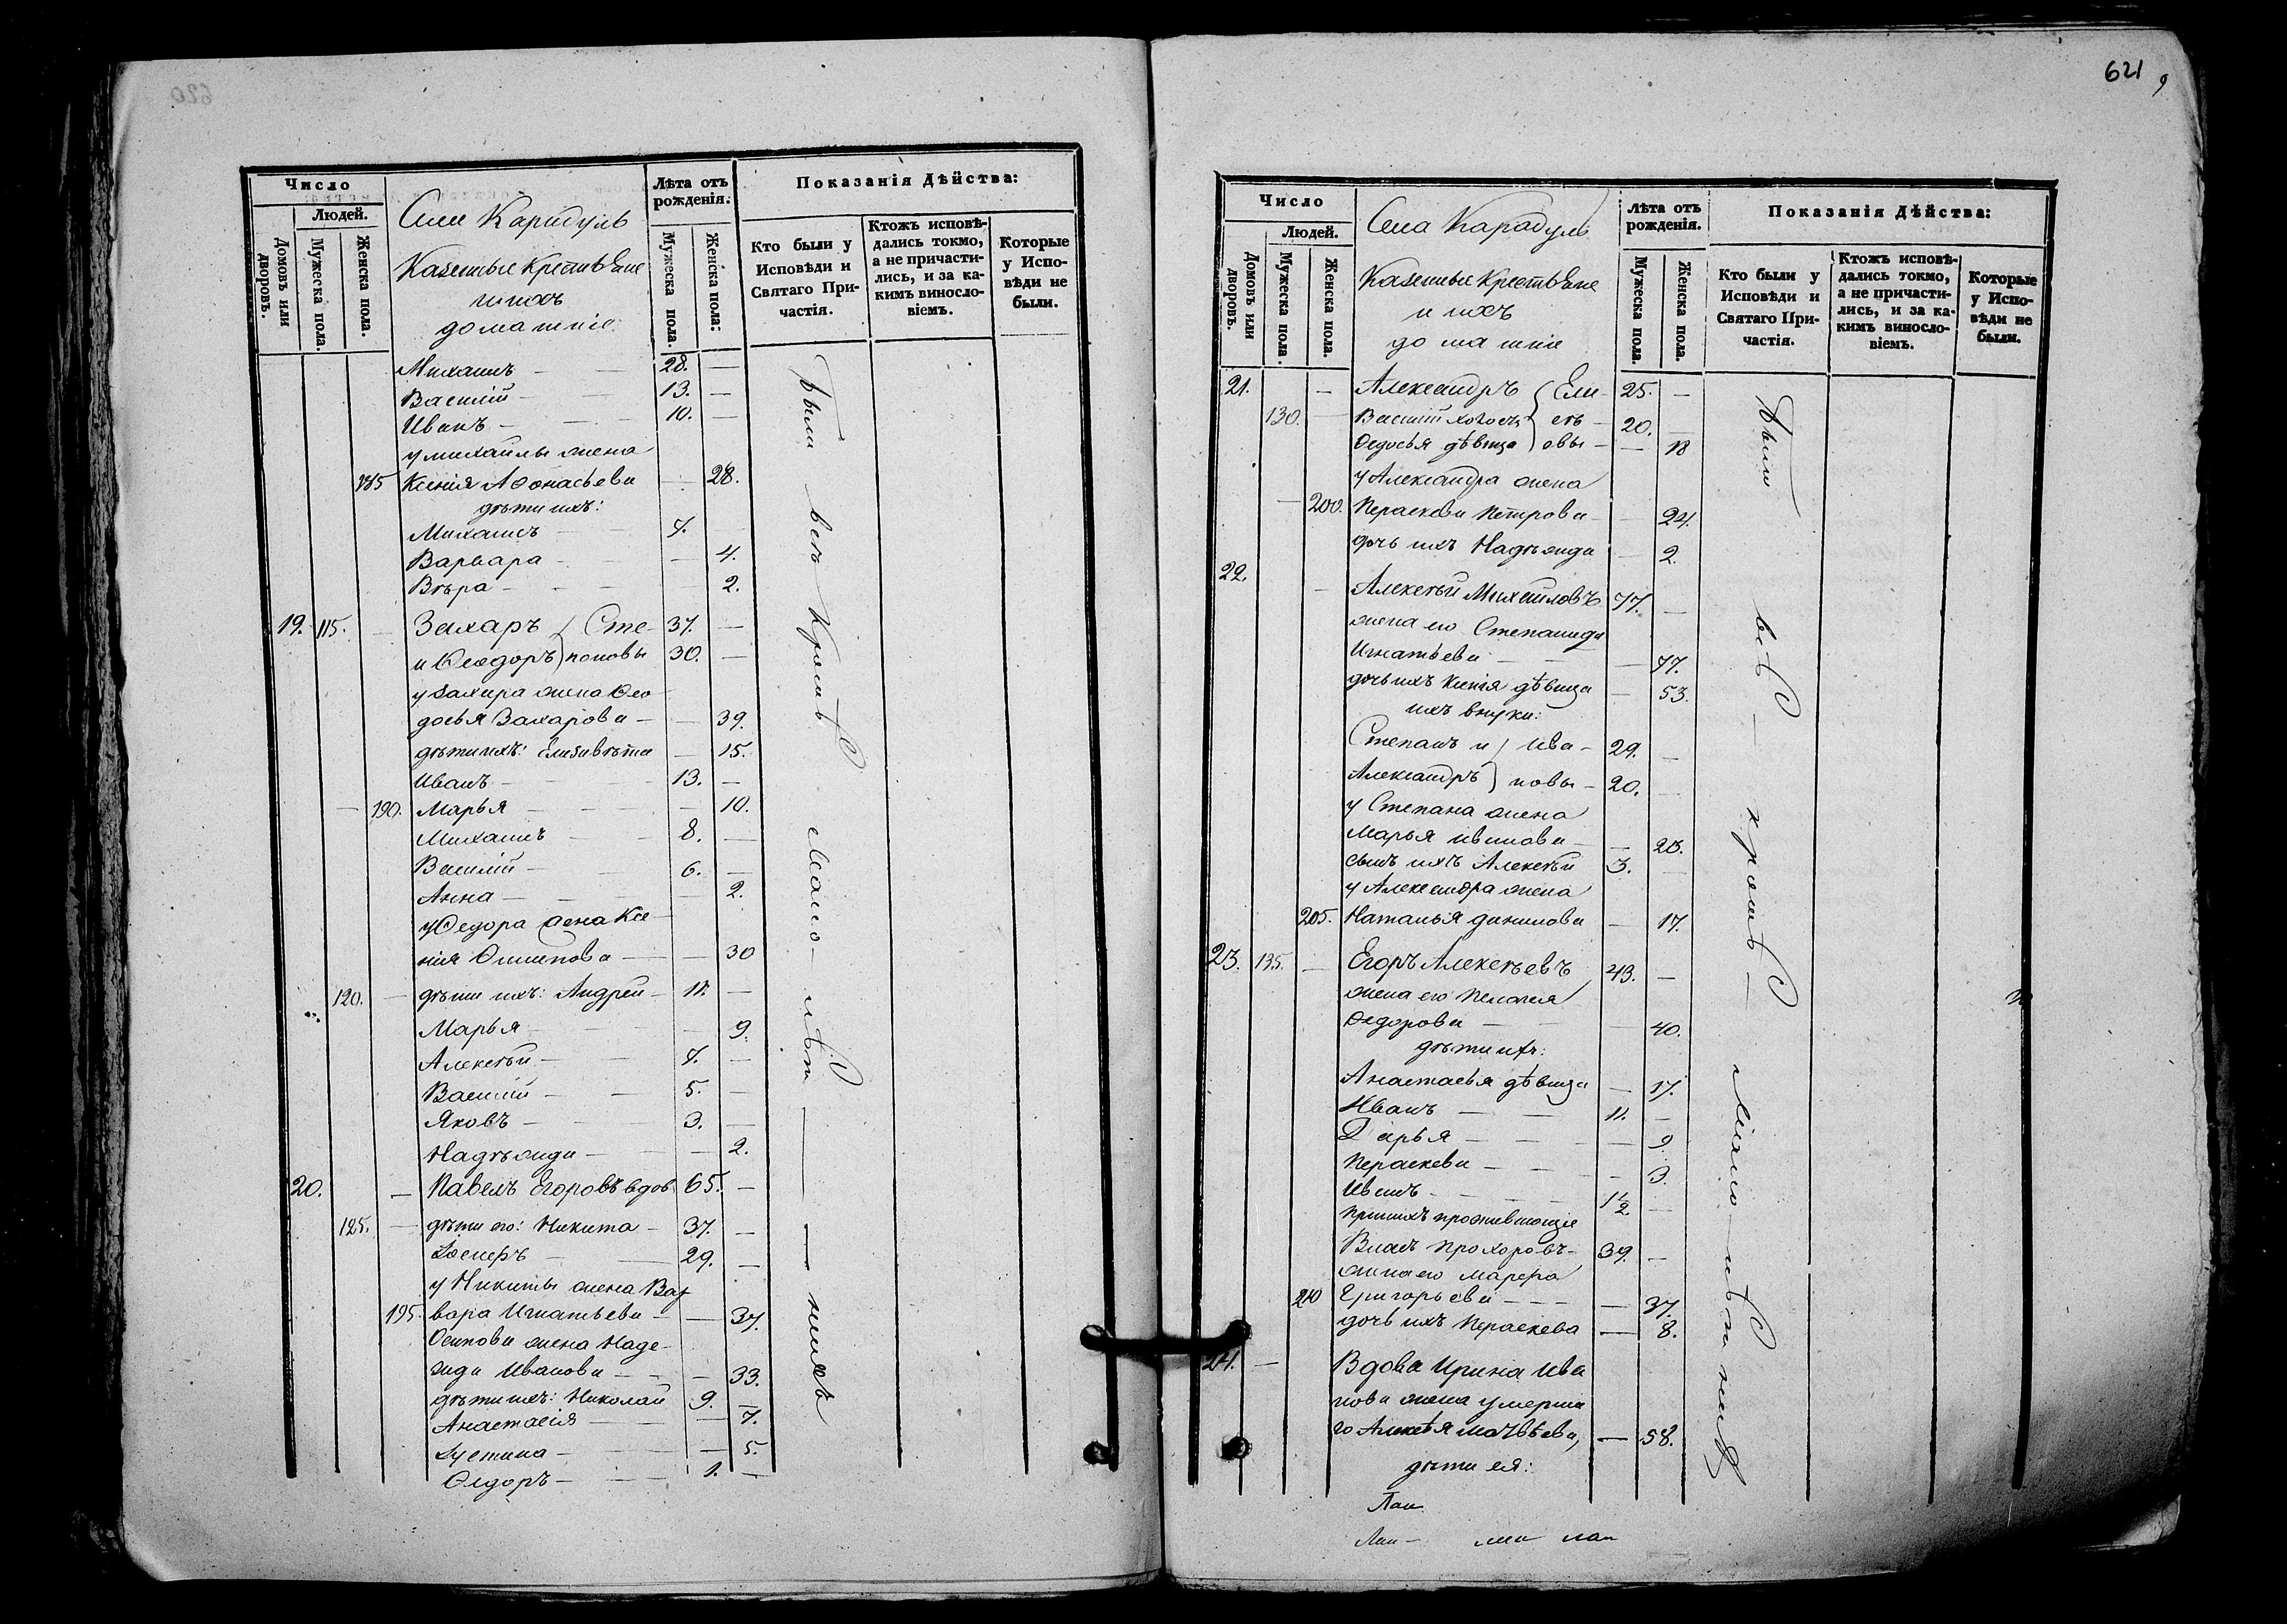 620
Число
Людей.
Домовъ или дворовъ.
Мужеска пола.
Женска пола.
Села Карадуль
Казенные Крестьяне
и ихъ
домашніе
Лѣта отъ рожденія.
Мужеска пола.
Женска пола:
Показанія Дѣйства:
Кто были у Исповѣди и Святаго Причастія.
Ктожъ исповѣдались токмо, а не причастились, и за какимъ винословіемъ.
Которые у Исповѣди не были.
Михаилъ — 28. —
Василій — 13. —
Иванъ — 10. —
у михаилы жена
185 Ксенія Афонасьева — 28.
дѣти ихъ:
Михаилъ — 7.
Варвара — 4.
Вѣра — 2.
19. 115. — Захаръ } Сте- 37. —
и Ѳеодоръ } пановы 30. —
у Захара жена Ѳео
досья Захарова — 39.
дѣти ихъ: Елизавѣта — 15.
Иванъ — 13. —
— 190. Марья — 10.
Михаилъ — 8. —
Василій — 6. —
Анна — 2.
у Ѳедора жена Ксе
нія Осипова — 30
120. — дѣти ихъ: Андрей — 11. —
Марья — 9.
Алексѣй — 7. —
Василій — 5. —
Яковъ — 3. —
Надѣжда — 2.
20. — Павелъ Егоровъ вдов 65. —
125. — дѣти его: Никита — 37. —
Іосифъ — 29. —
у Никиты жена Вар
195. вара Игнатьева — 37.
Осипова жена Наде-
жда Иванова — 33.
дѣти ихъ: Николай 9. —
Анастасія — 7.
Устина — 5.
Ѳедоръ — 1. —
Были всѣ кромѣ мало-лѣт — — нихъ
621
Число
Людей.
Домовъ или дворовъ.
Мужеска пола.
Женска пола.
Села Карадуль
Казенные Крестьяне
и ихъ
домашніе
Лѣта отъ рожденія.
Мужеска пола.
Женска пола.
Показанія Дѣйства:
Кто были у Исповѣди и Святаго Причастія.
Ктожъ исповѣдались токмо, а не причастились, и за какимъ винословіемъ.
Которые у Исповѣди не были.
21. — Александръ } Ели- 25. —
130. — Василій холостъ } сѣ — 20. —
Ѳедосья дѣвица } евы — 18
у Александра жена
— 200. Пераскева Петрова — 24.
дочь ихъ Надѣжда — 2.
22. — Алексѣй Михайловъ 77. —
жена его Степанида
Игнатьева — 77.
дочь ихъ Ксенія дѣвица — 53.
ихъ внуки:
Степанъ и } Ива- 29. —
Александръ } новы — 20. —
у Степана жена
Марья Иванова — 28.
сынъ ихъ Алексѣй 3. —
у Александра жена
205. Наталья данилова — 17.
23. 135. — Егоръ Алексѣевъ 43. —
жена его Пелагея
Ѳедорова — 40.
дѣти ихъ:
Анастасья дѣвица — 17.
Иванъ — 11. —
Дарья — 9.
Пераскева — 3.
Иванъ — 1½ —
при нихъ проживающіе
Власъ Прохоровъ — 39. —
жена его Марфа
210 Григорьева — 37.
дочь ихъ Пераскева — 8.
24. — Вдова Ирина Ива
нова жена умерша
го Алексѣя Матвѣева, — 58.
дѣти ея:
Были всѣ — кромѣ — мало — лѣтнихъ